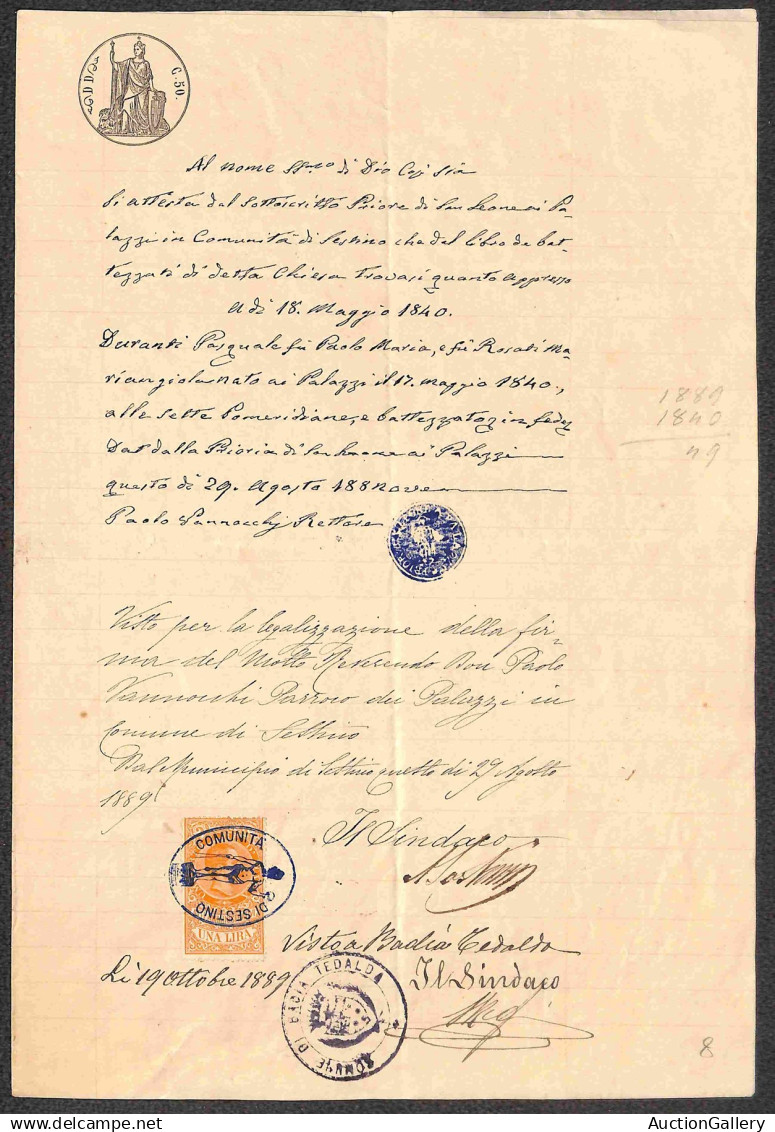 D D
C. 50.
Al nome SS.mo di Dio Così Sia
Si attesta dal Sottoscritto Priore di San Leone ai Pa-
lazzi in Comunità di Sestino che dal libro de bat-
tezzati di detta Chiesa trovasi quanto appresso
A dì 18. Maggio 1840.
Duranti Pasquale fu Paolo Maria, e fu Rosati Ma-
riangiola nato ai Palazzi il 17. maggio 1840.,
alle sette Pomeridiane, e battezzato in fede
Dat dalla Prioria di San Leone ai Palazzi
questo dì 29. Agosto 188nove
Paolo Vannocchj Rettore
1889
1840
49
Visto per la legalizzazione della fir-
ma del Molto Reverendo Don Paolo
Vannocchi Parroco dei Palazzi in
Comune di Sestino
Dal Municipio di Sestino questo dì 29 Agosto
1889
Il Sindaco
COMUNITÀ
DI SESTINO
UNA LIRA
Visto a Badia Tedalda
Lì 19 Ottobre 1889
Il Sindaco
COMUNE DI BADIA TEDALDA
8
AuctionGallery